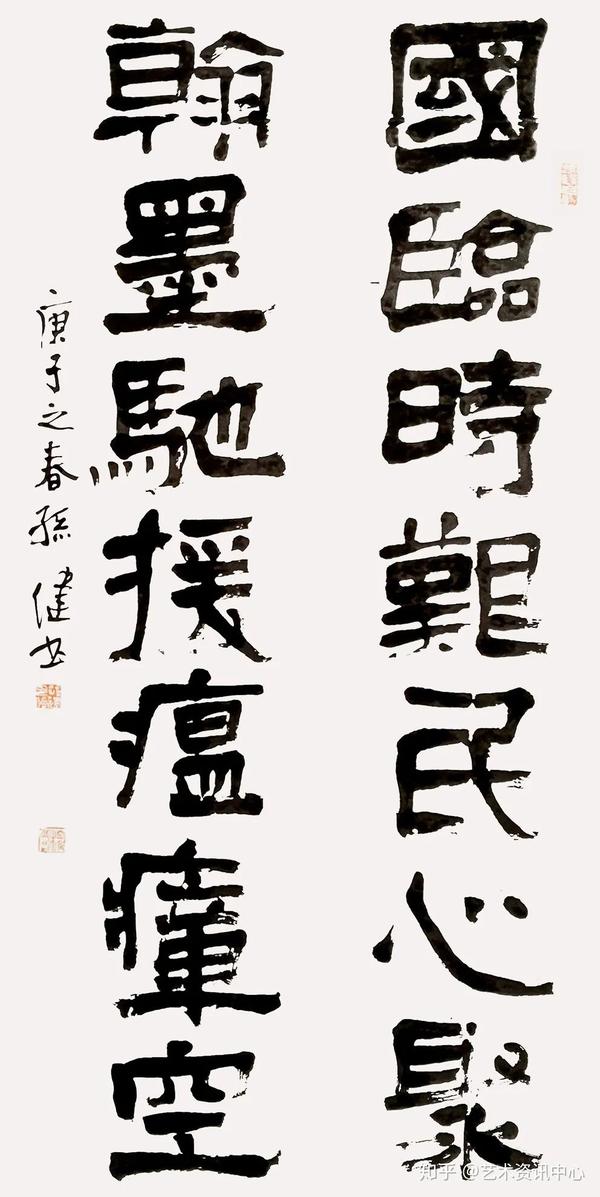 國臨時艱民心聚
翰墨馳援瘟瘴空
庚子之春孫健書
知乎 @艺术资讯中心